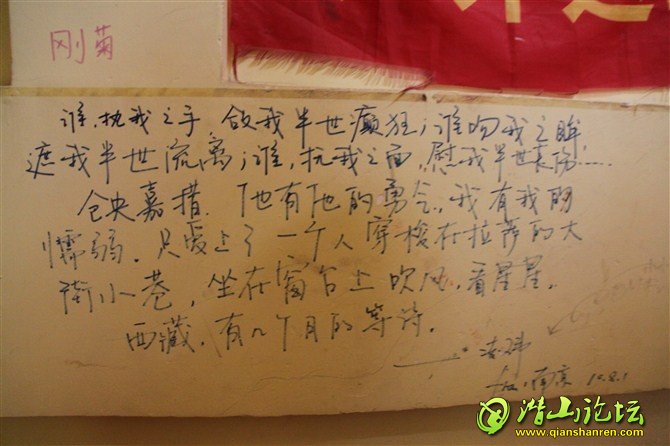 刚菊
谁,执我之手 敛我半世癫狂;谁吻我之眸
遮我半世流离;谁,抚我之面,慰我半世哀伤……
仓央嘉措.他有他的勇气,我有我的
懦弱.只爱上了一个人穿梭在拉萨的大
街小巷,坐在窗台上吹风,看星星.
西藏.有几个月的等待.
南京 10.8.1
潜山论坛
www.qianshanren.com